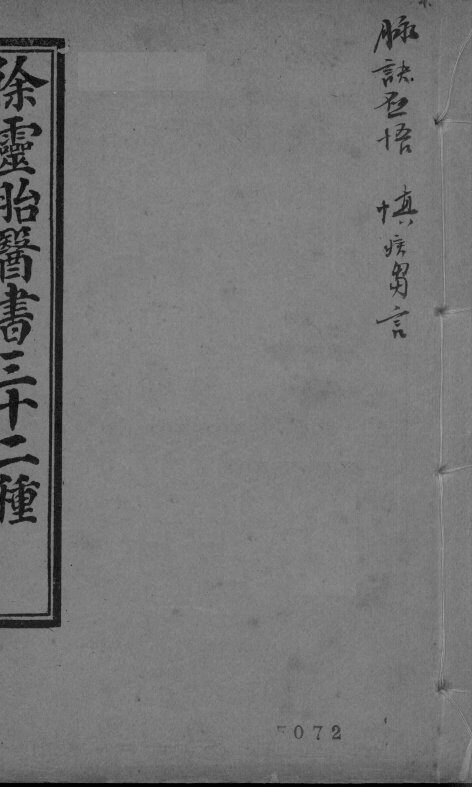 脉訣啟悟 慎疾芻言
徐靈胎醫書三十二種
7072